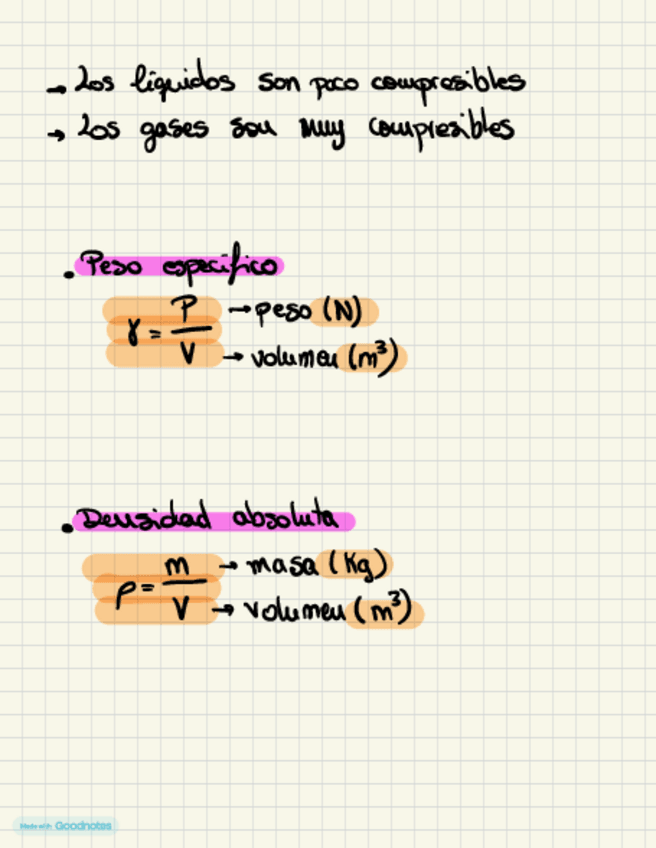 → Los líquidos son poco compresibles
→ Los gases son muy compresibles
• Peso específico
γ = P / V
→ peso (N)
→ volumen (m³)
• Densidad absoluta
ρ = m / V
→ masa (Kg)
→ volumen (m³)
Made with Goodnotes